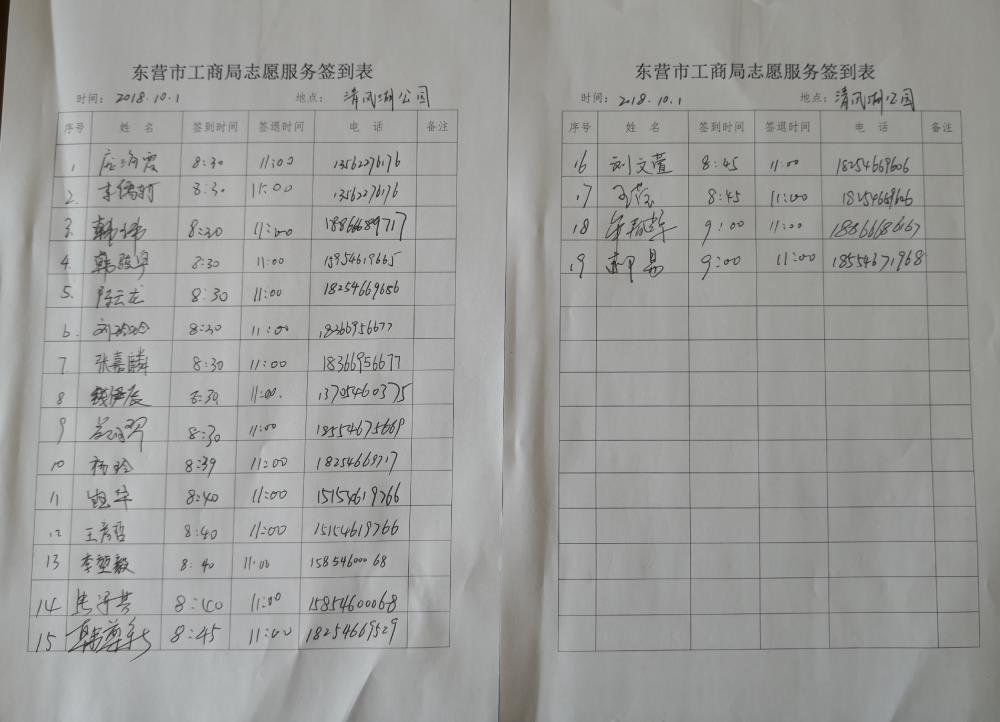 东营市工商局志愿服务签到表
时间: 2018.10.1 地点: 清风湖公园
序号 姓名 签到时间 签退时间 电话 备注
1 8:30 11:00
2. 8:30 11:00
3. 韩伟 8:30 11:00 18866689717
4. 韩骏宇 8:30 11:00 15954619665
5. 陈云龙 8:30 11:00 18254669656
6. 刘玲玲 8:30 11:00 18366956677
7 张嘉麟 8:30 11:00 18366956677
8 钱伊辰 8:30 11:00. 13705460375
9 8:30 11:00 18554675669
10 杨玲 8:39 11:00 18254669717
11 8:40 11:00 15154619766
12 王彦哲 8:40 11:00 15154619766
13 李堃毅 8:40 11:00 15854600068
14 8:40 11:00 15854600068
15 韩尊 8:45 11:00 18254669529
东营市工商局志愿服务签到表
时间: 2018.10.1 地点: 清风湖公园
序号 姓名 签到时间 签退时间 电话 备注
16 刘文萱 8:45 11:00 18254669606
17 8:45 11:00 18254669606
18 9:00 11:00 18866686167
19 9:00 11:00 18554671968